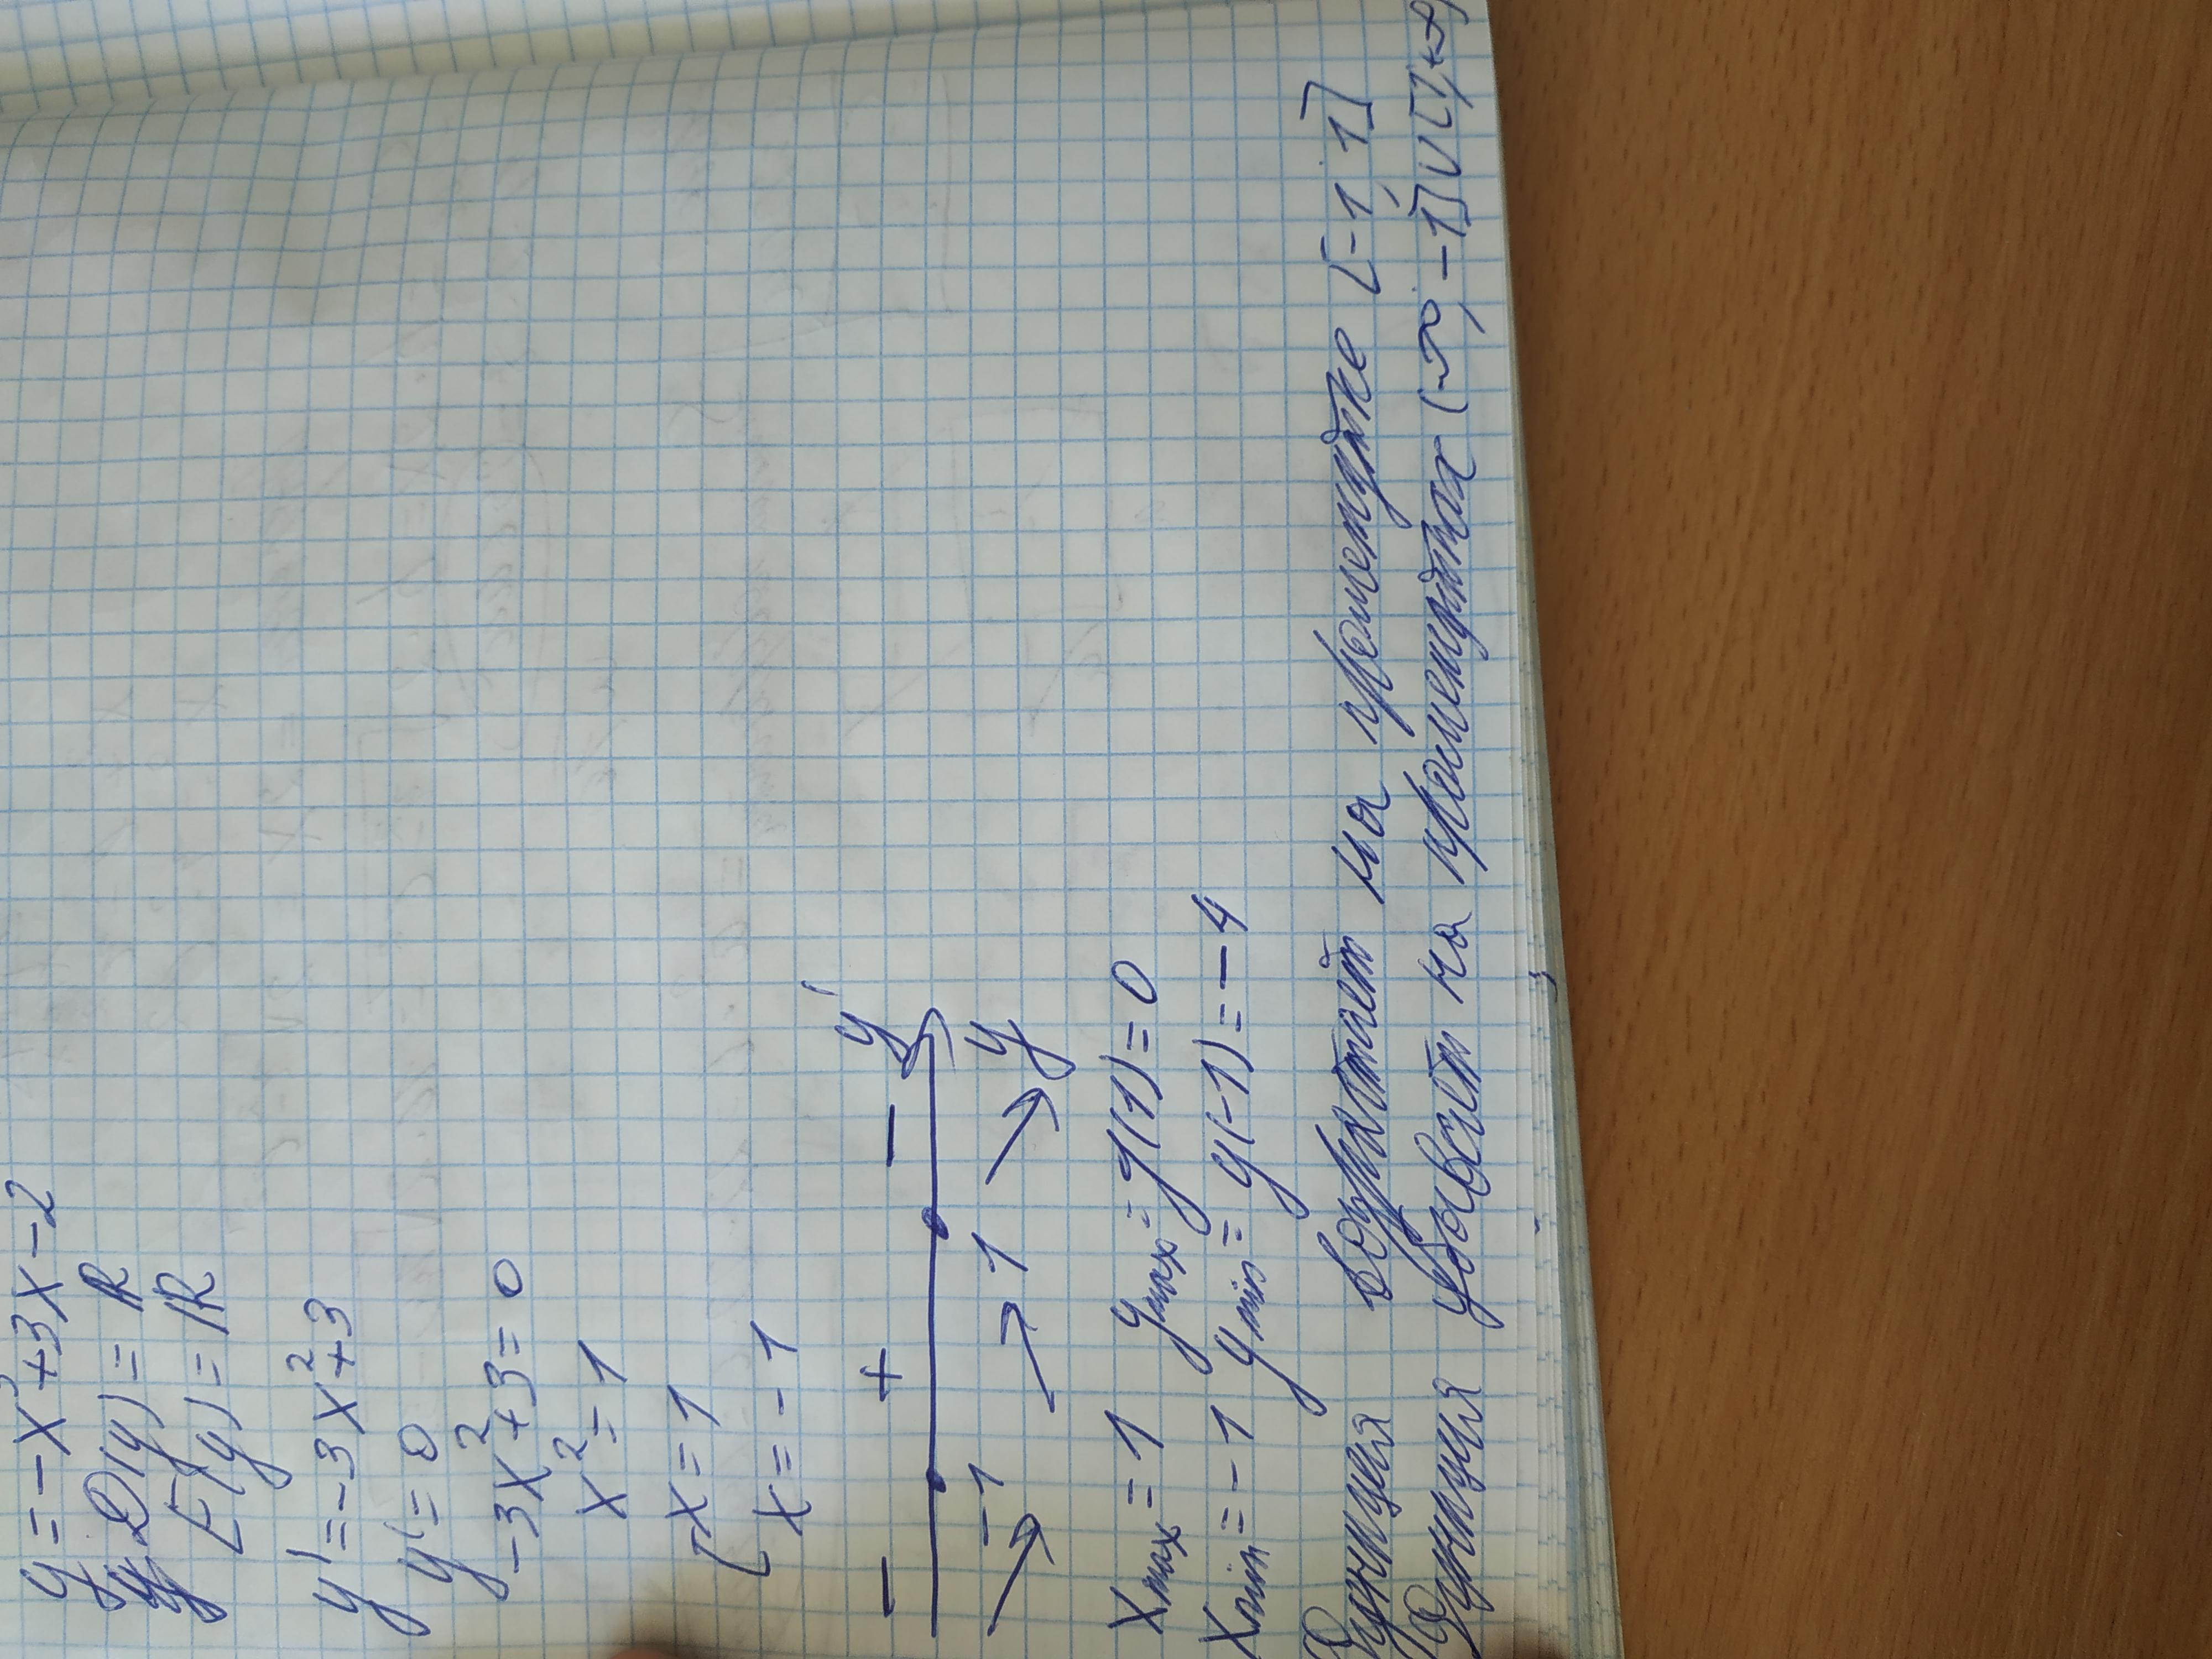 y = -x³+3x-2
D(y) = R
E(y) = R
y' = -3x²+3
y' = 0
-3x²+3=0
x²=1
[x=1
x=-1
- + - y'
-1 1 y
xmax = 1 ymax = y(1) = 0
xmin = -1 ymin = y(-1) = -4
Функция возрастает на промежутке [-1; 1]
Функция убывает на промежутках (-∞; -1] ∪ [1; +∞)